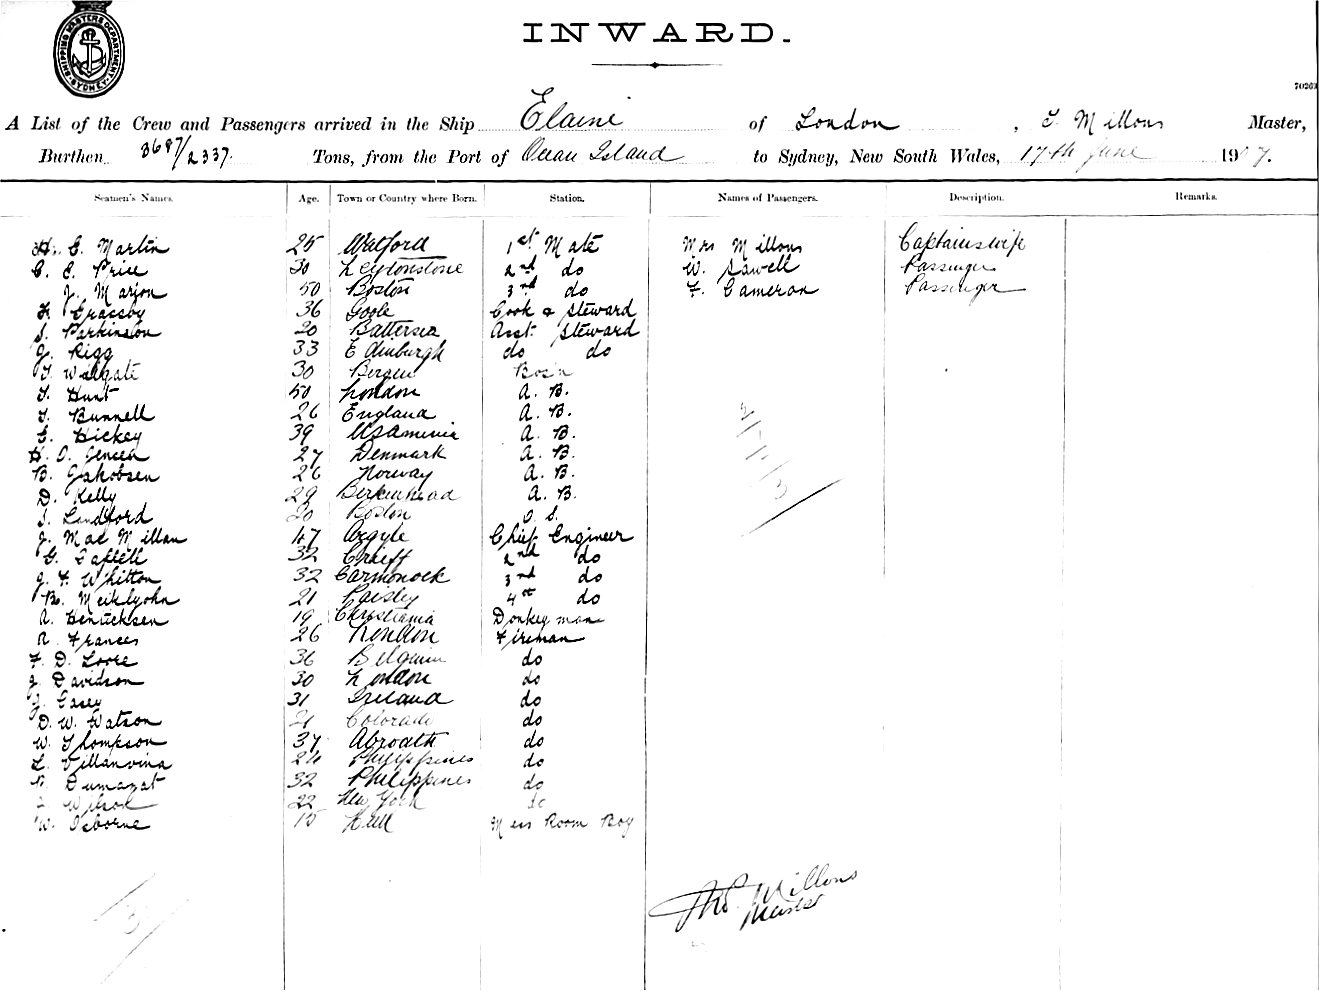 SHIPPING MASTERS DEPARTMENT SYDNEY
INWARD.
A List of the Crew and Passengers arrived in the Ship Elaine of London, T. Millons Master,
Burthen 3687/2337. Tons, from the Port of Ocean Island to Sydney, New South Wales, 17th June 1907.
Seamen's Names. Age. Town or Country where Born. Station. Names of Passengers. Description. Remarks.
H. E. Martin 25 Watford 1st Mate Mrs Millons Captains wife
C. E. Price 30 Leytonstone 2nd do W. Sawell Passenger
J. Marjon 50 Boston 3rd do F. Cameron Passenger
F. Grassby 36 Goole Cook & Steward
S. Parkinson 20 Battersea Asst. Steward
J. Rigg 33 Edinburgh do do
T. Walgate 30 Bergen Bos'n
T. Hunt 50 London A. B.
T. Bunnell 26 England A. B.
E. Hickey 39 A. B.
H. O. Jensen 27 Denmark A. B.
B. Jakobsen 26 Norway A. B.
D. Kelly 29 Berkenhead A. B.
S. Landford 20 Boston O. S.
J. Mac Millan 47 Argyle Chief Engineer
G. 32 Crieff 2nd do
J. F. Whitton 32 Carmonock 3rd do
B. Meiklejohn 21 Paisley 4th do
A. Henricksen 19 Christiania Donkeyman
R. Frances 26 London Fireman
F. D. Loore 36 Belguim do
J. Davidson 30 London do
J. Casey 31 Ireland do
D. W. Watson 21 Colorado do
W. Thompson 37 Abroath do
L. Villanvina 24 Philippines do
Dumagat 32 Philippines do
Wilson 22 New York do
W. Osborne 15 Hull Mess Room Boy
Thos. Millons
Master